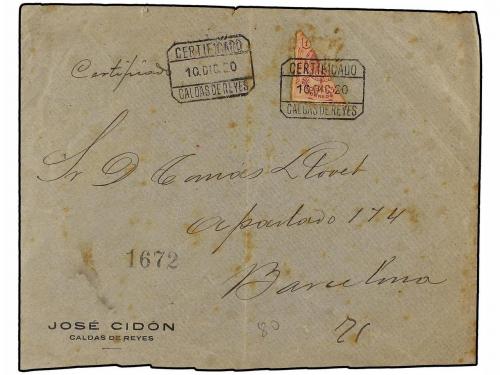 Certificado
CERTIFICADO
10.DIC.20
CALDAS DE REYES
CERTIFICADO
10.DIC.20
CALDAS DE REYES
Sr D Tomas Llovet
Apartado 174
Barcelona
1672
JOSÉ CIDÓN
CALDAS DE REYES
80